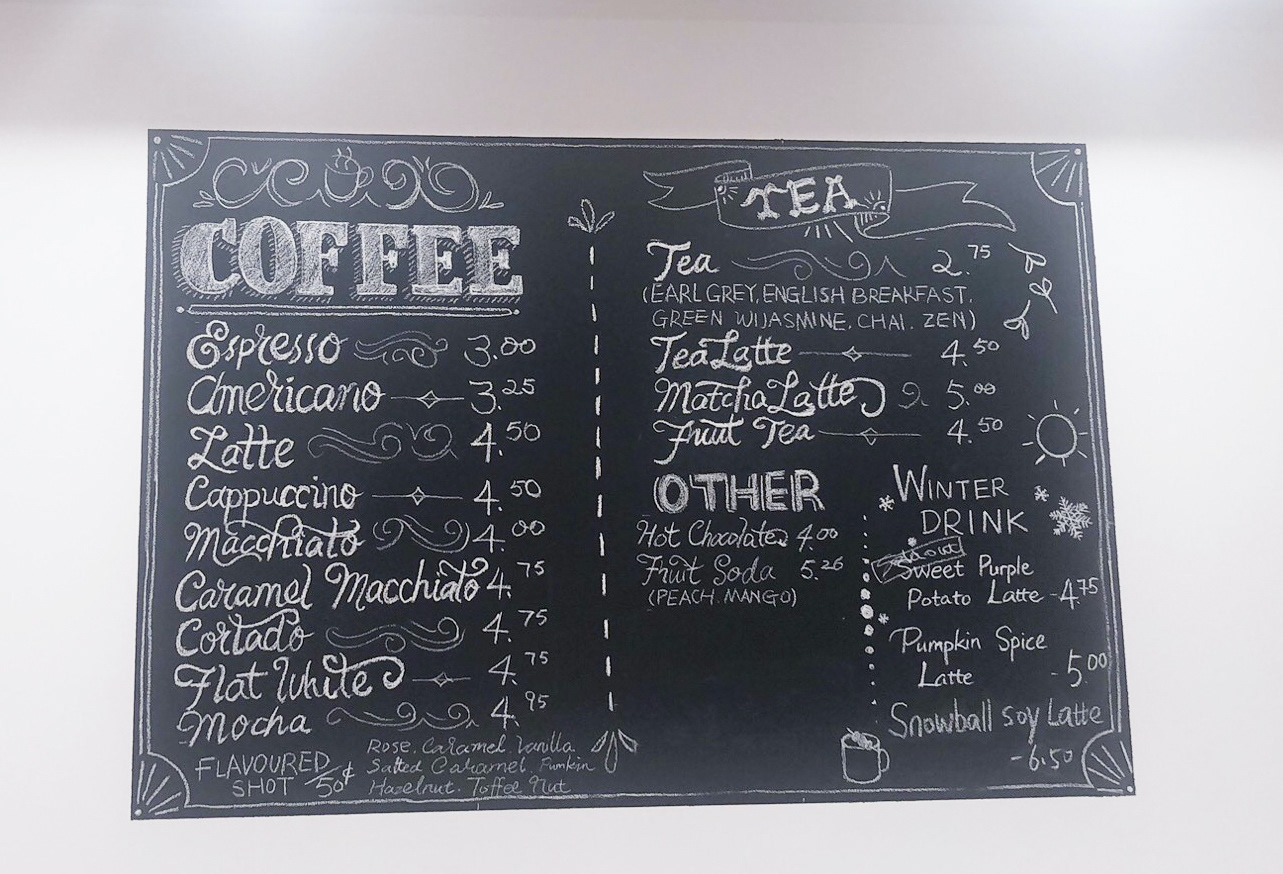 COFFEE
Espresso 3.00
Americano 3.25
Latte 4.50
Cappuccino 4.50
Macchiato 4.00
Caramel Macchiato 4.75
Cortado 4.75
Flat White 4.75
Mocha 4.95
FLAVOURED SHOT / 50¢
Rose. Caramel. Vanilla
Salted Caramel. Pumkin
Hazelnut. Toffee Nut
TEA
Tea 2.75
(EARL GREY, ENGLISH BREAKFAST.
GREEN W/JASMINE. CHAI. ZEN)
Tea Latte 4.50
Matcha Latte 5.00
Fruit Tea 4.50
OTHER
Hot Chocolate 4.00
Fruit Soda 5.26
(PEACH. MANGO)
WINTER
DRINK
Sweet Purple
Potato Latte - 4.75
Pumpkin Spice
Latte - 5.00
Snowball soy Latte
- 6.50